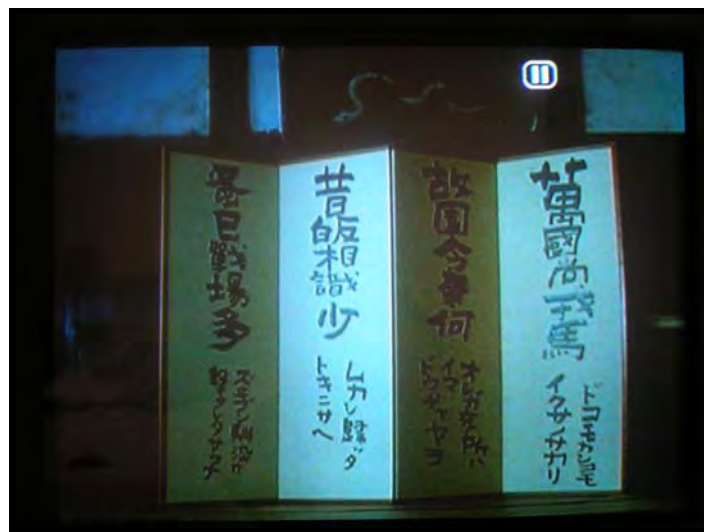 萬國尚戎馬
ドコモカシコモ
イクサノサカリ
故園今若何
オレガ在所ハ
イマ
ドウヂャヤラ
昔皈相識少
ムカシ歸ッタ
トキニサヘ
蚤已戰場多
ズヰブン馴染ガ
タサウナ